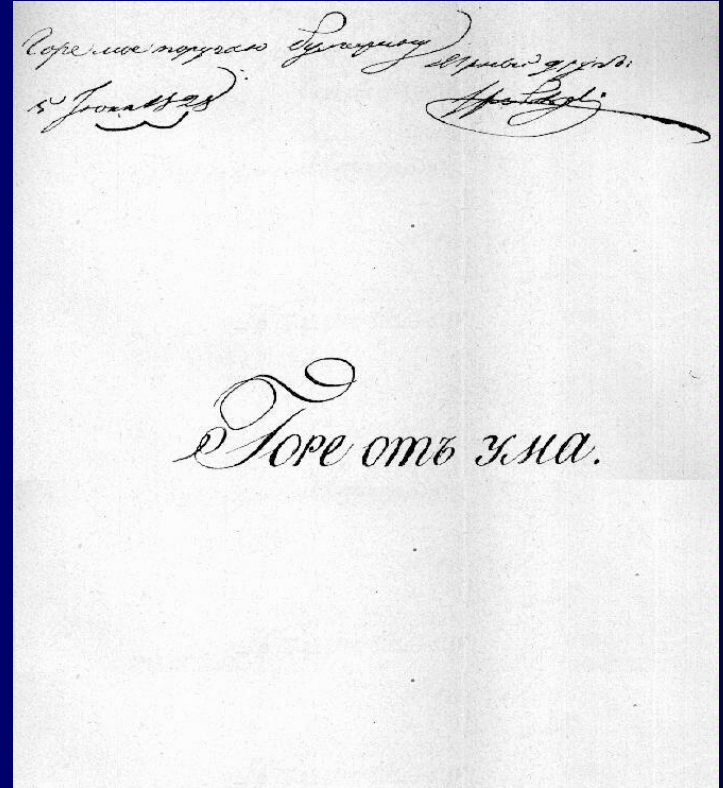 Горе мое поручаю Булгарину
Верный другъ
5 Іюня 1828
Горе отъ ума.